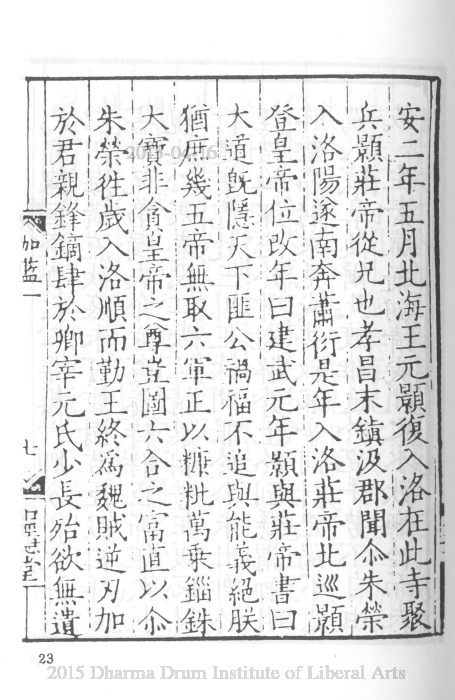 安二年五月北海王元顥復入洛在此寺聚
兵顥莊帝從兄也孝昌末鎮汲郡聞尒朱榮
入洛陽遂南奔蕭衍是年入洛莊帝北巡顥
登皇帝位改年曰建武元年顥與莊帝書曰
大道旣隱天下匪公禍福不追與能義絕朕
猶庶幾五帝無取六軍正以糠粃萬乗錙銖
大寶非貪皇帝之尊豈圖六合之富直以尒
朱榮徃歲入洛順而勤王終爲魏賊逆刃加
於君親鋒鏑肆於卿宰元氏少長殆欲無遺
加藍一
七
23
2015 Dharma Drum Institute of Liberal Arts